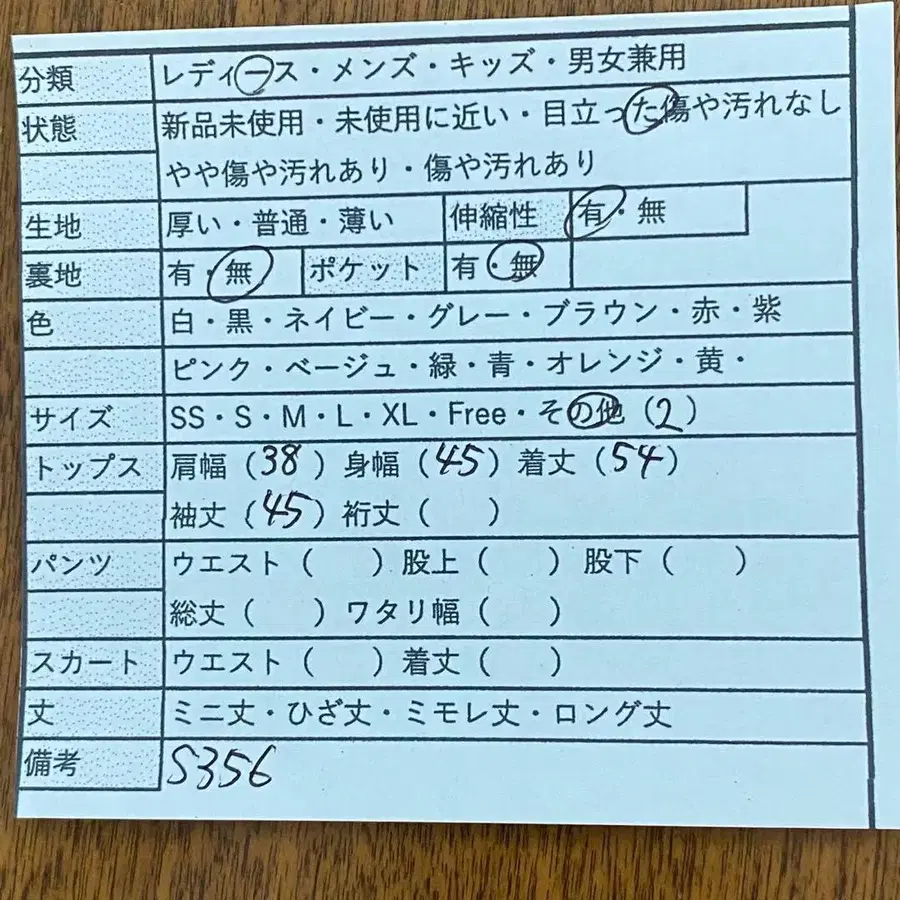 分類 レディース・メンズ・キッズ・男女兼用
状態 新品未使用・未使用に近い・目立った傷や汚れなし
やや傷や汚れあり・傷や汚れあり
生地 厚い・普通・薄い 伸縮性 有・無
裏地 有・無 ポケット 有・無
色 白・黒・ネイビー・グレー・ブラウン・赤・紫
ピンク・ベージュ・緑・青・オレンジ・黄・
サイズ SS・S・M・L・XL・Free・その他（2）
トップス 肩幅（38）身幅（45）着丈（54）
袖丈（45）裄丈（ ）
パンツ ウエスト（ ）股上（ ）股下（ ）
総丈（ ）ワタリ幅（ ）
スカート ウエスト（ ）着丈（ ）
丈 ミニ丈・ひざ丈・ミモレ丈・ロング丈
備考 S356